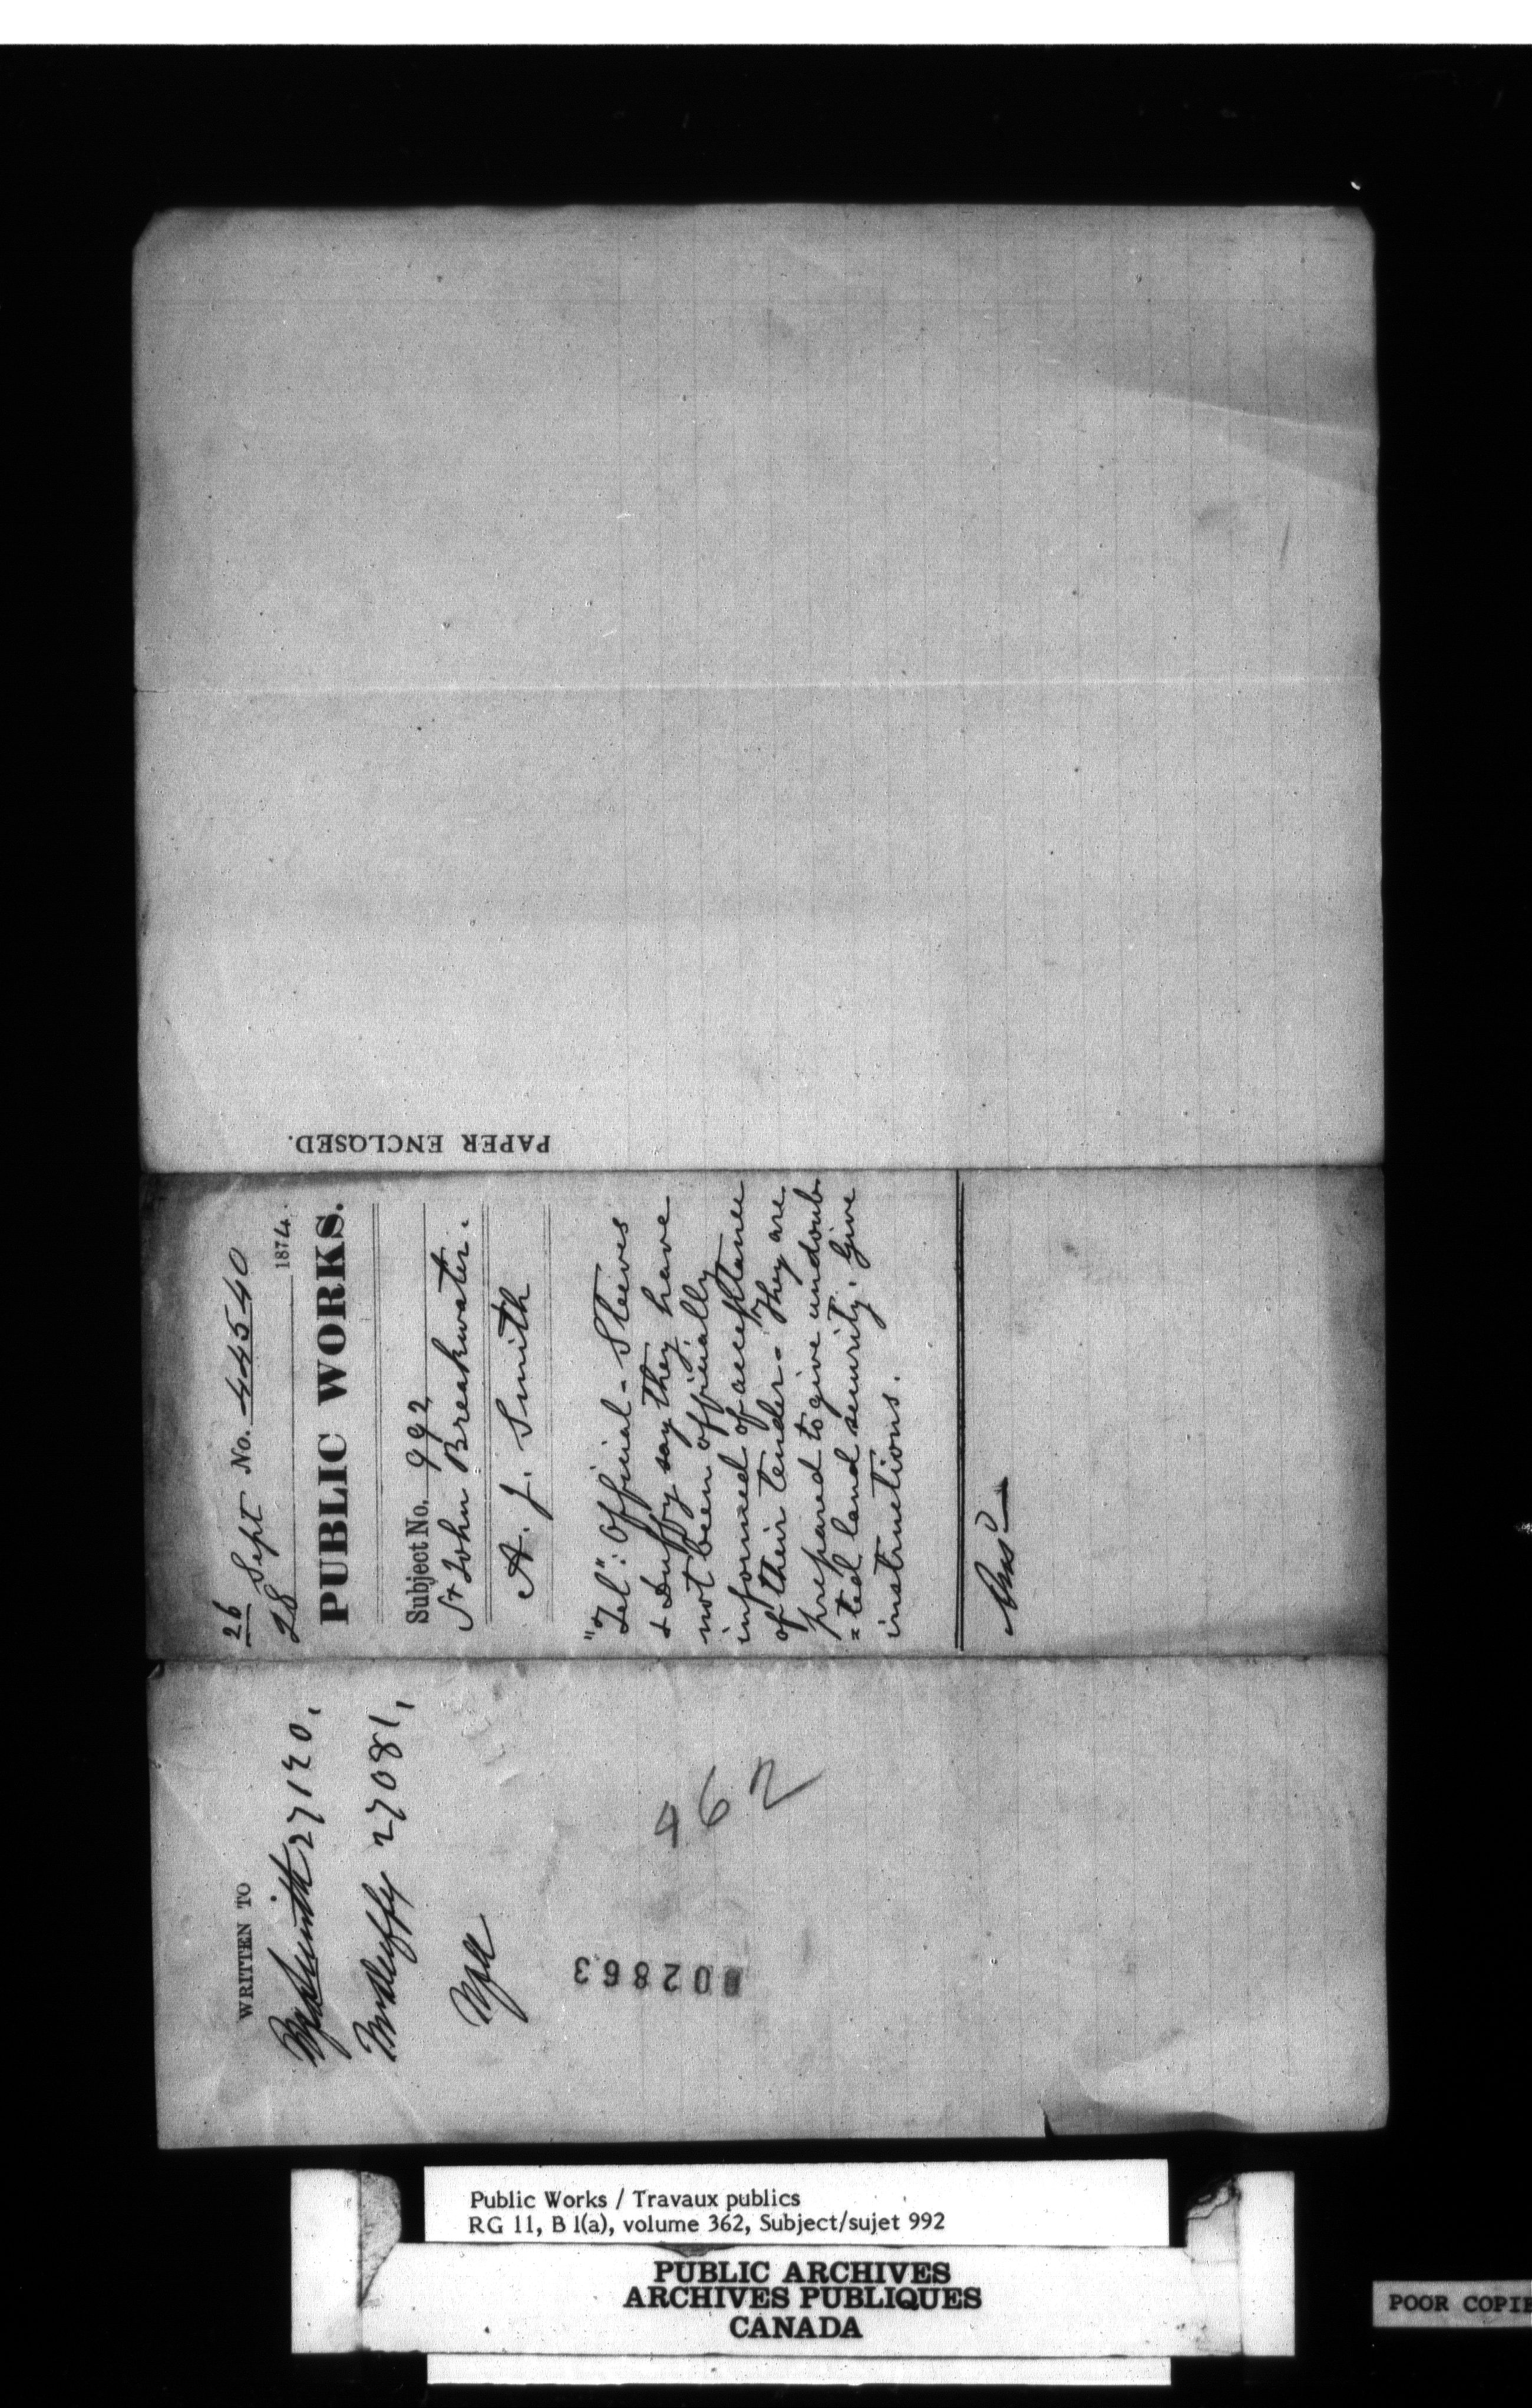 PAPER ENCLOSED.
26
28 Sept No. 44540
1874.
PUBLIC WORKS.
Subject No. 992
St John Breakwater.
A. J. Smith
"Tel": Official - Steeves
& Duffy say they have
not been officially
informed of acceptance
of their tender - They are
prepared to give undoub
=ted land security. Give
instructions.
WRITTEN TO
Smith 27120.
Duffy 27081,
462
002863
Public Works / Travaux publics
RG 11, B 1(a), volume 362, Subject/sujet 992
PUBLIC ARCHIVES
ARCHIVES PUBLIQUES
CANADA
POOR COPIE